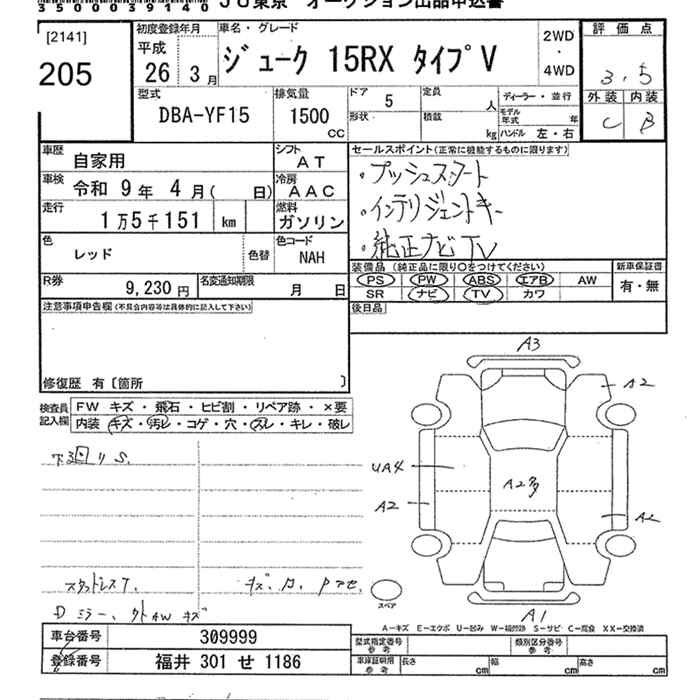 35000039140 JU東京 オークション出品申込書
[2141]
205
初度登録年月
平成 26 3月
車名・グレード
ジューク 15RX タイプV
2WD
・
4WD
評価点
3.5
外装 内装
C B
型式
DBA-YF15
排気量
1500
cc
ドア
5
形状
定員
人
積載
kg
ディーラー・並行
モデル年式 年
ハンドル 左・右
車歴
自家用
シフト
AT
車検
令和 9年 4月( 日)
冷房
AAC
走行
1万5千151 km
燃料
ガソリン
色
レッド
色替
色コード
NAH
R券
9,230円
名変通知期限
月 日
セールスポイント(正常に機能するものに限ります)
・プッシュスタート
・インテリジェントキー
・純正ナビTV
装備品(純正品に限り〇をつけてください)
PS PW ABS エアB AW
SR ナビ TV カワ
新車保証書
有・無
後日品
注意事項申告欄(不具合内容等は具体的に記入して下さい)
修復歴 有〔箇所 〕
検査員記入欄
FW キズ・飛石・ヒビ割・リペア跡・×要
内装 キズ・汚レ・コゲ・穴・スレ・キレ・破レ
下回りS.
スタッドレスT.
Dミラー、
AWキズ
A3
A2
UA4
A2
A2多
A2
A1
スペア
A-キズ E-エクボ U-凹み W-補修跡 S-サビ C-腐食 XX-交換済
車台番号 309999
登録番号 福井 301 せ 1186
型式指定番号
参考
類別区分番号
参考
車庫証明用
参考
長さ cm
幅 cm
高さ cm